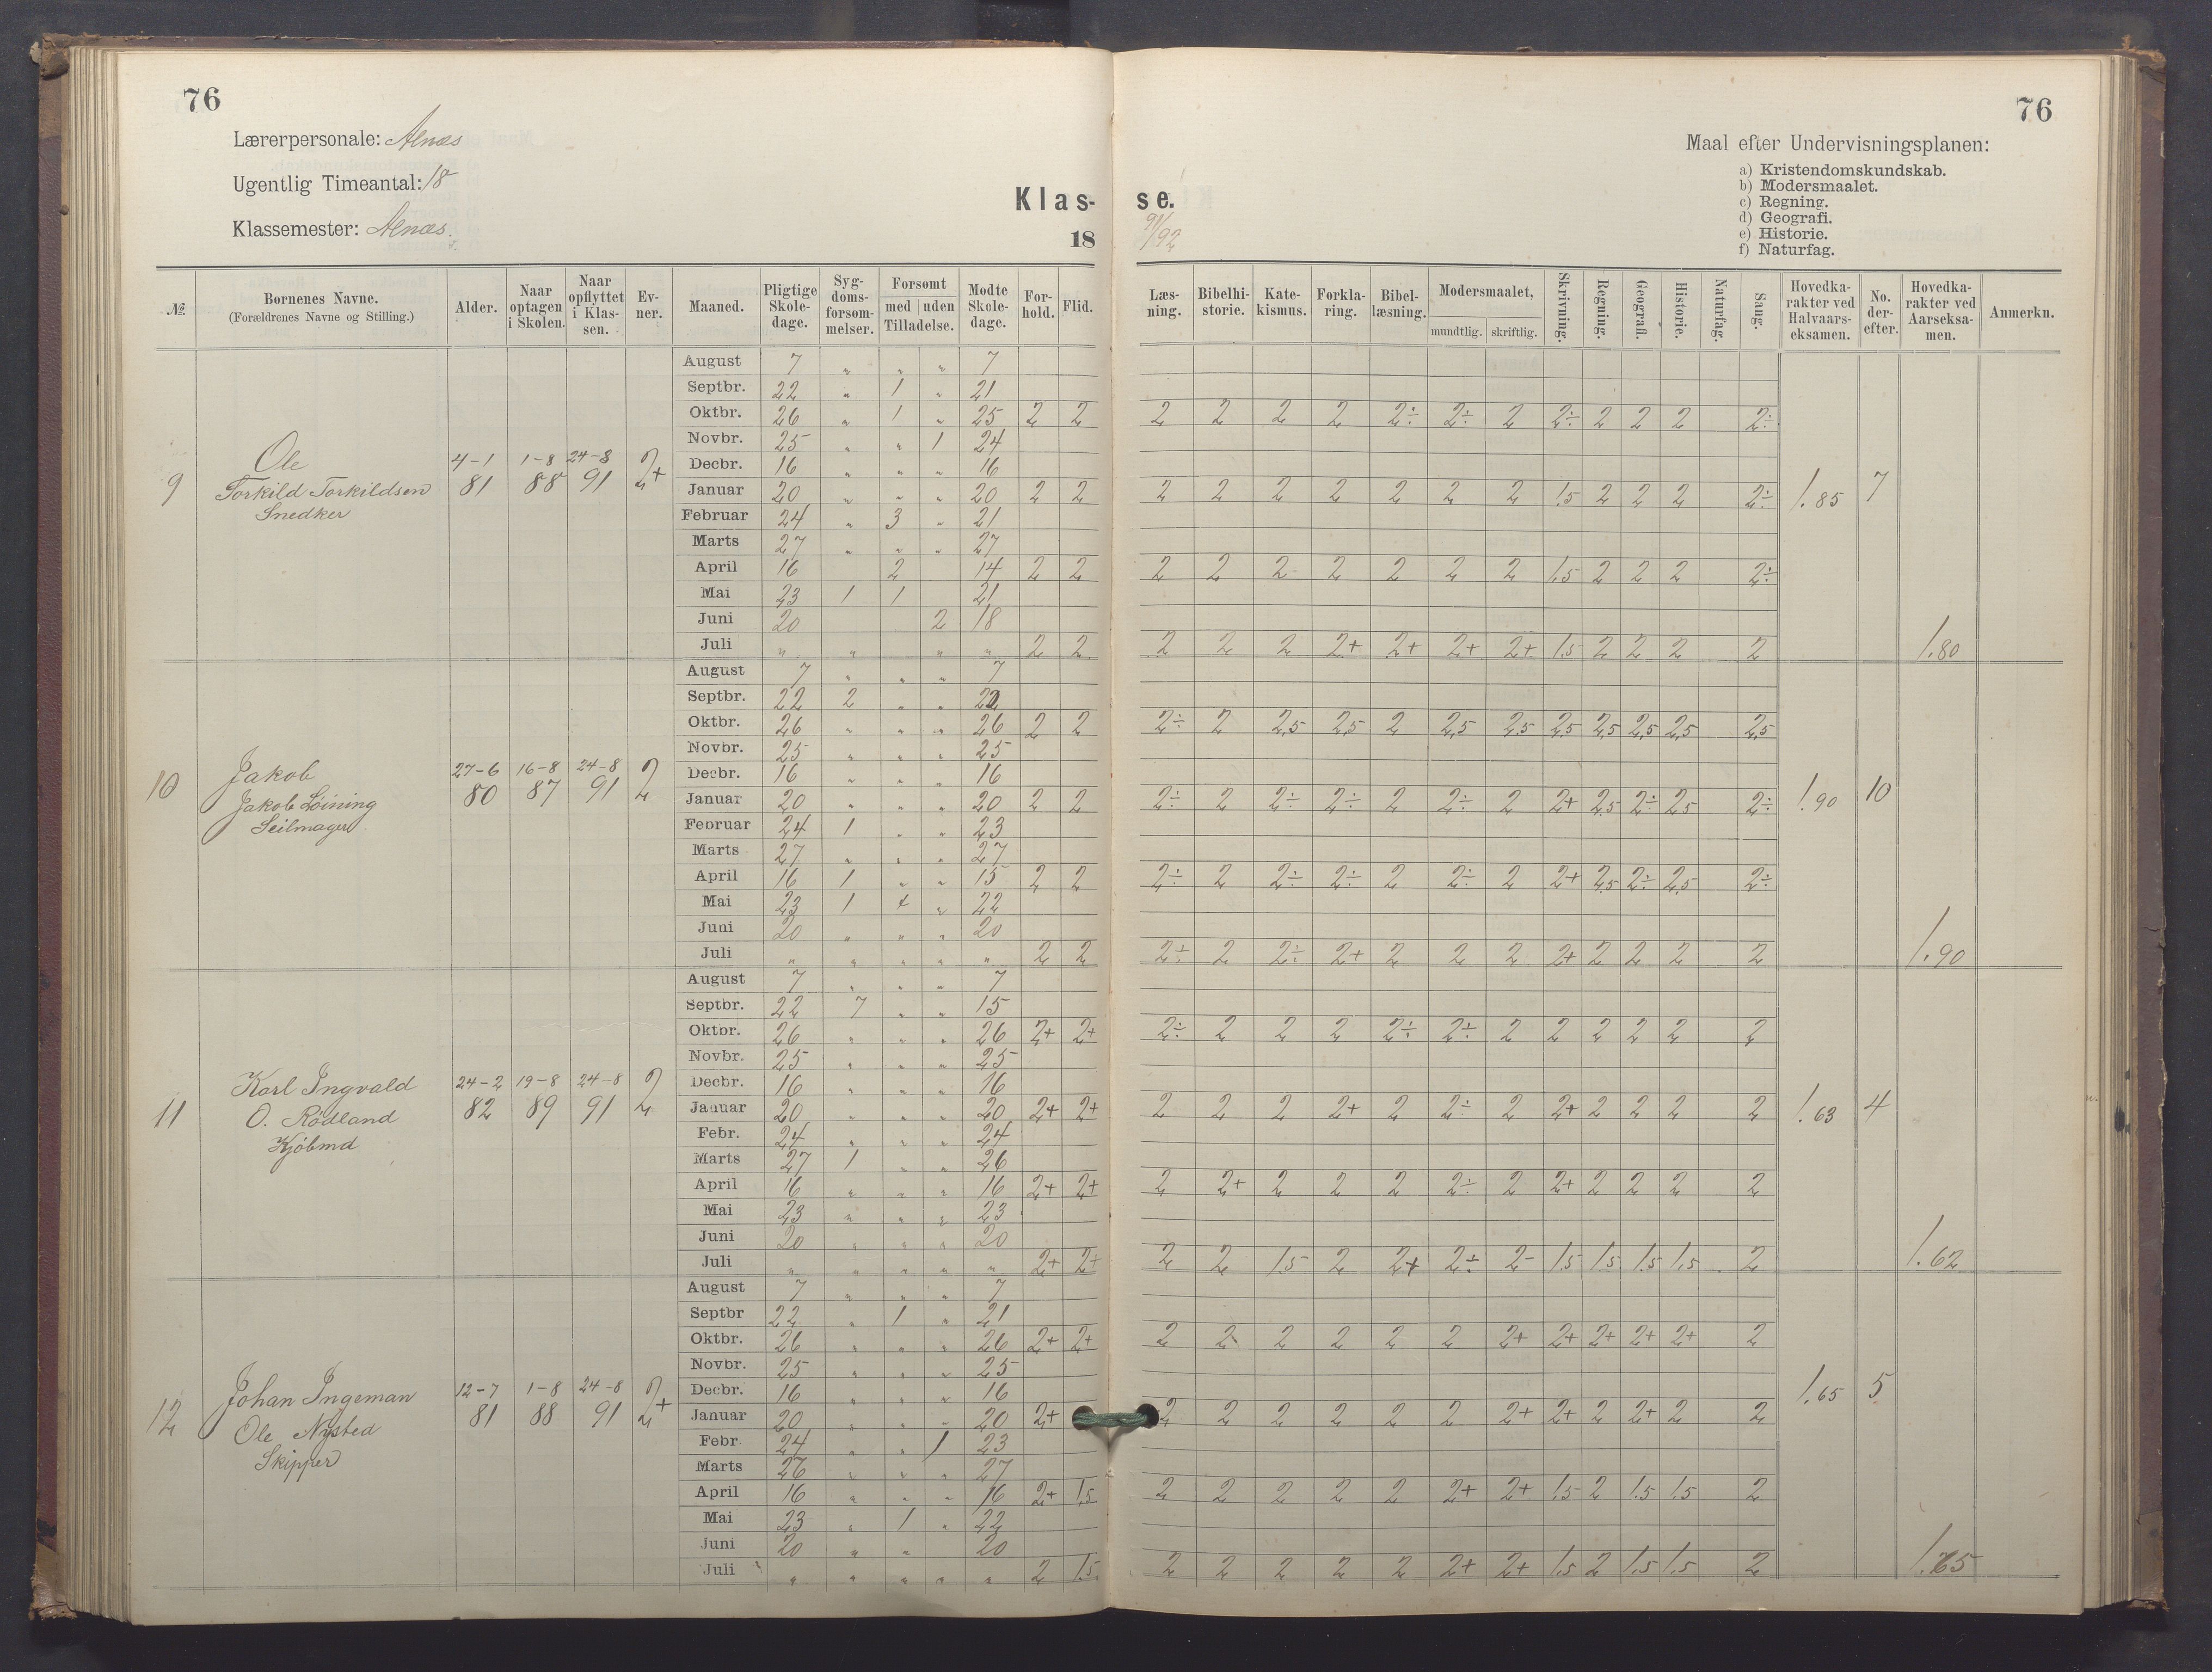 76
76
Lærerpersonale: Aenæs
Ugentlig Timeantal: 18
Klassemester: Aenæs.
Klas- se.
18 91/92
Maal efter Undervisningsplanen:
a) Kristendomskundskab.
b) Modersmaalet.
c) Regning.
d) Geografi.
e) Historie.
f) Naturfag.
№ | Børnenes Navne. (Forældrenes Navne og Stilling.) | Alder. | Naar optagen i Skolen. | Naar opflyttet i Klassen. | Evner. | Maaned. | Pligtige Skoledage. | Sygdomsforsømmelser. | Forsømt med uden Tilladelse. | Mødte Skoledage. | Forhold. | Flid. | Læsning. | Bibelhistorie. | Katekismus. | Forklaring. | Bibellæsning. | Modersmaalet, mundtlig. skriftlig. | Skrivning. | Regning. | Geografi. | Historie. | Naturfag. | Sang. | Hovedkarakter ved Halvaarseksamen. | No. derefter. | Hovedkarakter ved Aarseksamen. | Anmerkn.
9 Ole
Torkild Torkildsen
Snedker
4-1 81 | 1-8 88 | 24-8 91 | 2+
August 7 " " " 7
Septbr. 22 " 1 " 21
Oktbr. 26 " 1 " 25 2 2 2 2 2 2 2÷ 2÷ 2 2÷ 2 2 2 2÷
Novbr. 25 " " 1 24
Decbr. 16 " " " 16
Januar 20 " " " 20 2 2 2 2 2 2 2 2 2 1.5 2 2 2 2÷ 1.85 7
Februar 24 " 3 " 21
Marts 27 " " " 27
April 16 2 14 2 2 2 2 2 2 2 2 2 1.5 2 2 2 2÷
Mai 23 1 1 21
Juni 20 2 18
Juli " " " " 2 2 2 2 2 2+ 2+ 2+ 2+ 1.5 2 2 2 2 1.80
10 Jakob
Jakob Løining
Seilmager
27-6 80 | 16-8 87 | 24-8 91 | 2
August 7 " " " 7
Septbr. 22 2 " "
Oktbr. 26 " " " 26 2 2 2÷ 2 2,5 2,5 2 2,5 2.5 2.5 2,5 2,5 2,5 2,5
Novbr. 25 " " " 25
Decbr. 16 " " " 16
Januar 20 " " " 20 2 2 2÷ 2 2÷ 2÷ 2 2÷ 2 2+ 2.5 2÷ 2.5 2÷ 1.90 10
Februar 24 1 " " 23
Marts 27 " " " 27
April 16 1 " " 15 2 2 2÷ 2 2÷ 2÷ 2 2÷ 2 2+ 2.5 2÷ 2,5 2÷
Mai 23 1 " 22
Juni 20 " " " 20
Juli " " " " " 2 2 2÷ 2 2÷ 2+ 2 2 2 2+ 2 2 2 2 1.90
11 Karl Ingvald
O. Rødland
Kjøbmd
24-2 82 | 19-8 89 | 24-8 91 | 2
August 7 " " " 7
Septbr. 22 7 " " 15
Oktbr. 26 " " " 26 2+ 2+ 2÷ 2 2 2 2÷ 2÷ 2 2 2 2 2 2
Novbr. 25 " " " 25
Decbr. 16 " " " 16
Januar 20 " " " 20 2+ 2+ 2 2 2 2+ 2 2÷ 2 2+ 2 2 2 2 1.63 4
Febr. 24 " " " 24
Marts 27 1 " " 26
April 16 " " " 16 2+ 2+ 2 2+ 2 2 2 2÷ 2 2+ 2 2 2 2
Mai 23 " " " 23
Juni 20 " " " 20
Juli " " " " " 2+ 2+ 2 2 1.5 2 2+ 2÷ 2- 1.5 1.5 1.5 1.5 2 1.62
12 Johan Ingeman
Ole Nysted
Skipper
12-7 81 | 1-8 88 | 24-8 91 | 2+
August 7 " " " 7
Septbr 22 " 1 " 21
Oktbr. 26 " " " 26 2+ 2+ 2 2 2 2 2 2 2+ 2+ 2+ 2+ 2+ 2
Novbr. 25 " " " 25
Decbr. 16 " " " 16
Januar 20 " " " 20 2+ 2 2 2 2 2 2 2+ 2+ 2 2+ 2 2 1.65 5
Febr 24 " " 1 23
Marts " " " 27
April 16 " " " 16 2+ 1.5 2 2 2 2 2 2+ 2+ 1.5 2 1.5 1.5 2
Mai 23 " 1 " 22
Juni 20 " " 20
Juli " " " " " 2 1.5. 2 2 2 2 2 2+ 2+ 1.5 2 1.5 1.5 2 1.65